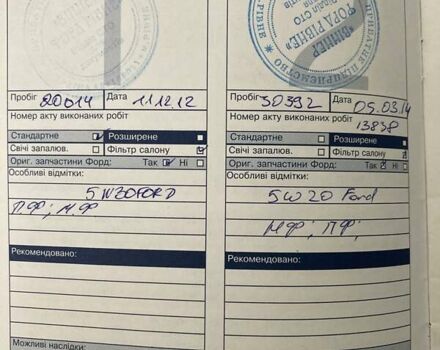 Пробіг 20014 Дата 11.12.12
Номер акту виконаних робіт
Стандартне Розширене
Свічі запалюв. Фільтр салону
Ориг. запчастини Форд: Так Ні
Особливі відмітки:
5W20FORD
П.Ф; М.Ф
Рекомендовано:
Можливі наслідки:
"ВІННЕР
ФОРД РІВНЕ"
ПРИВАТНЕ ПІДПРИЄМСТВО
Пробіг 30392 Дата 05.03.14
Номер акту виконаних робіт
13838
Стандартне Розширене
Свічі запалюв. Фільтр салону
Ориг. запчастини Форд: Так Ні
Особливі відмітки:
5W20 Ford
МФ; ПФ;
Рекомендовано: